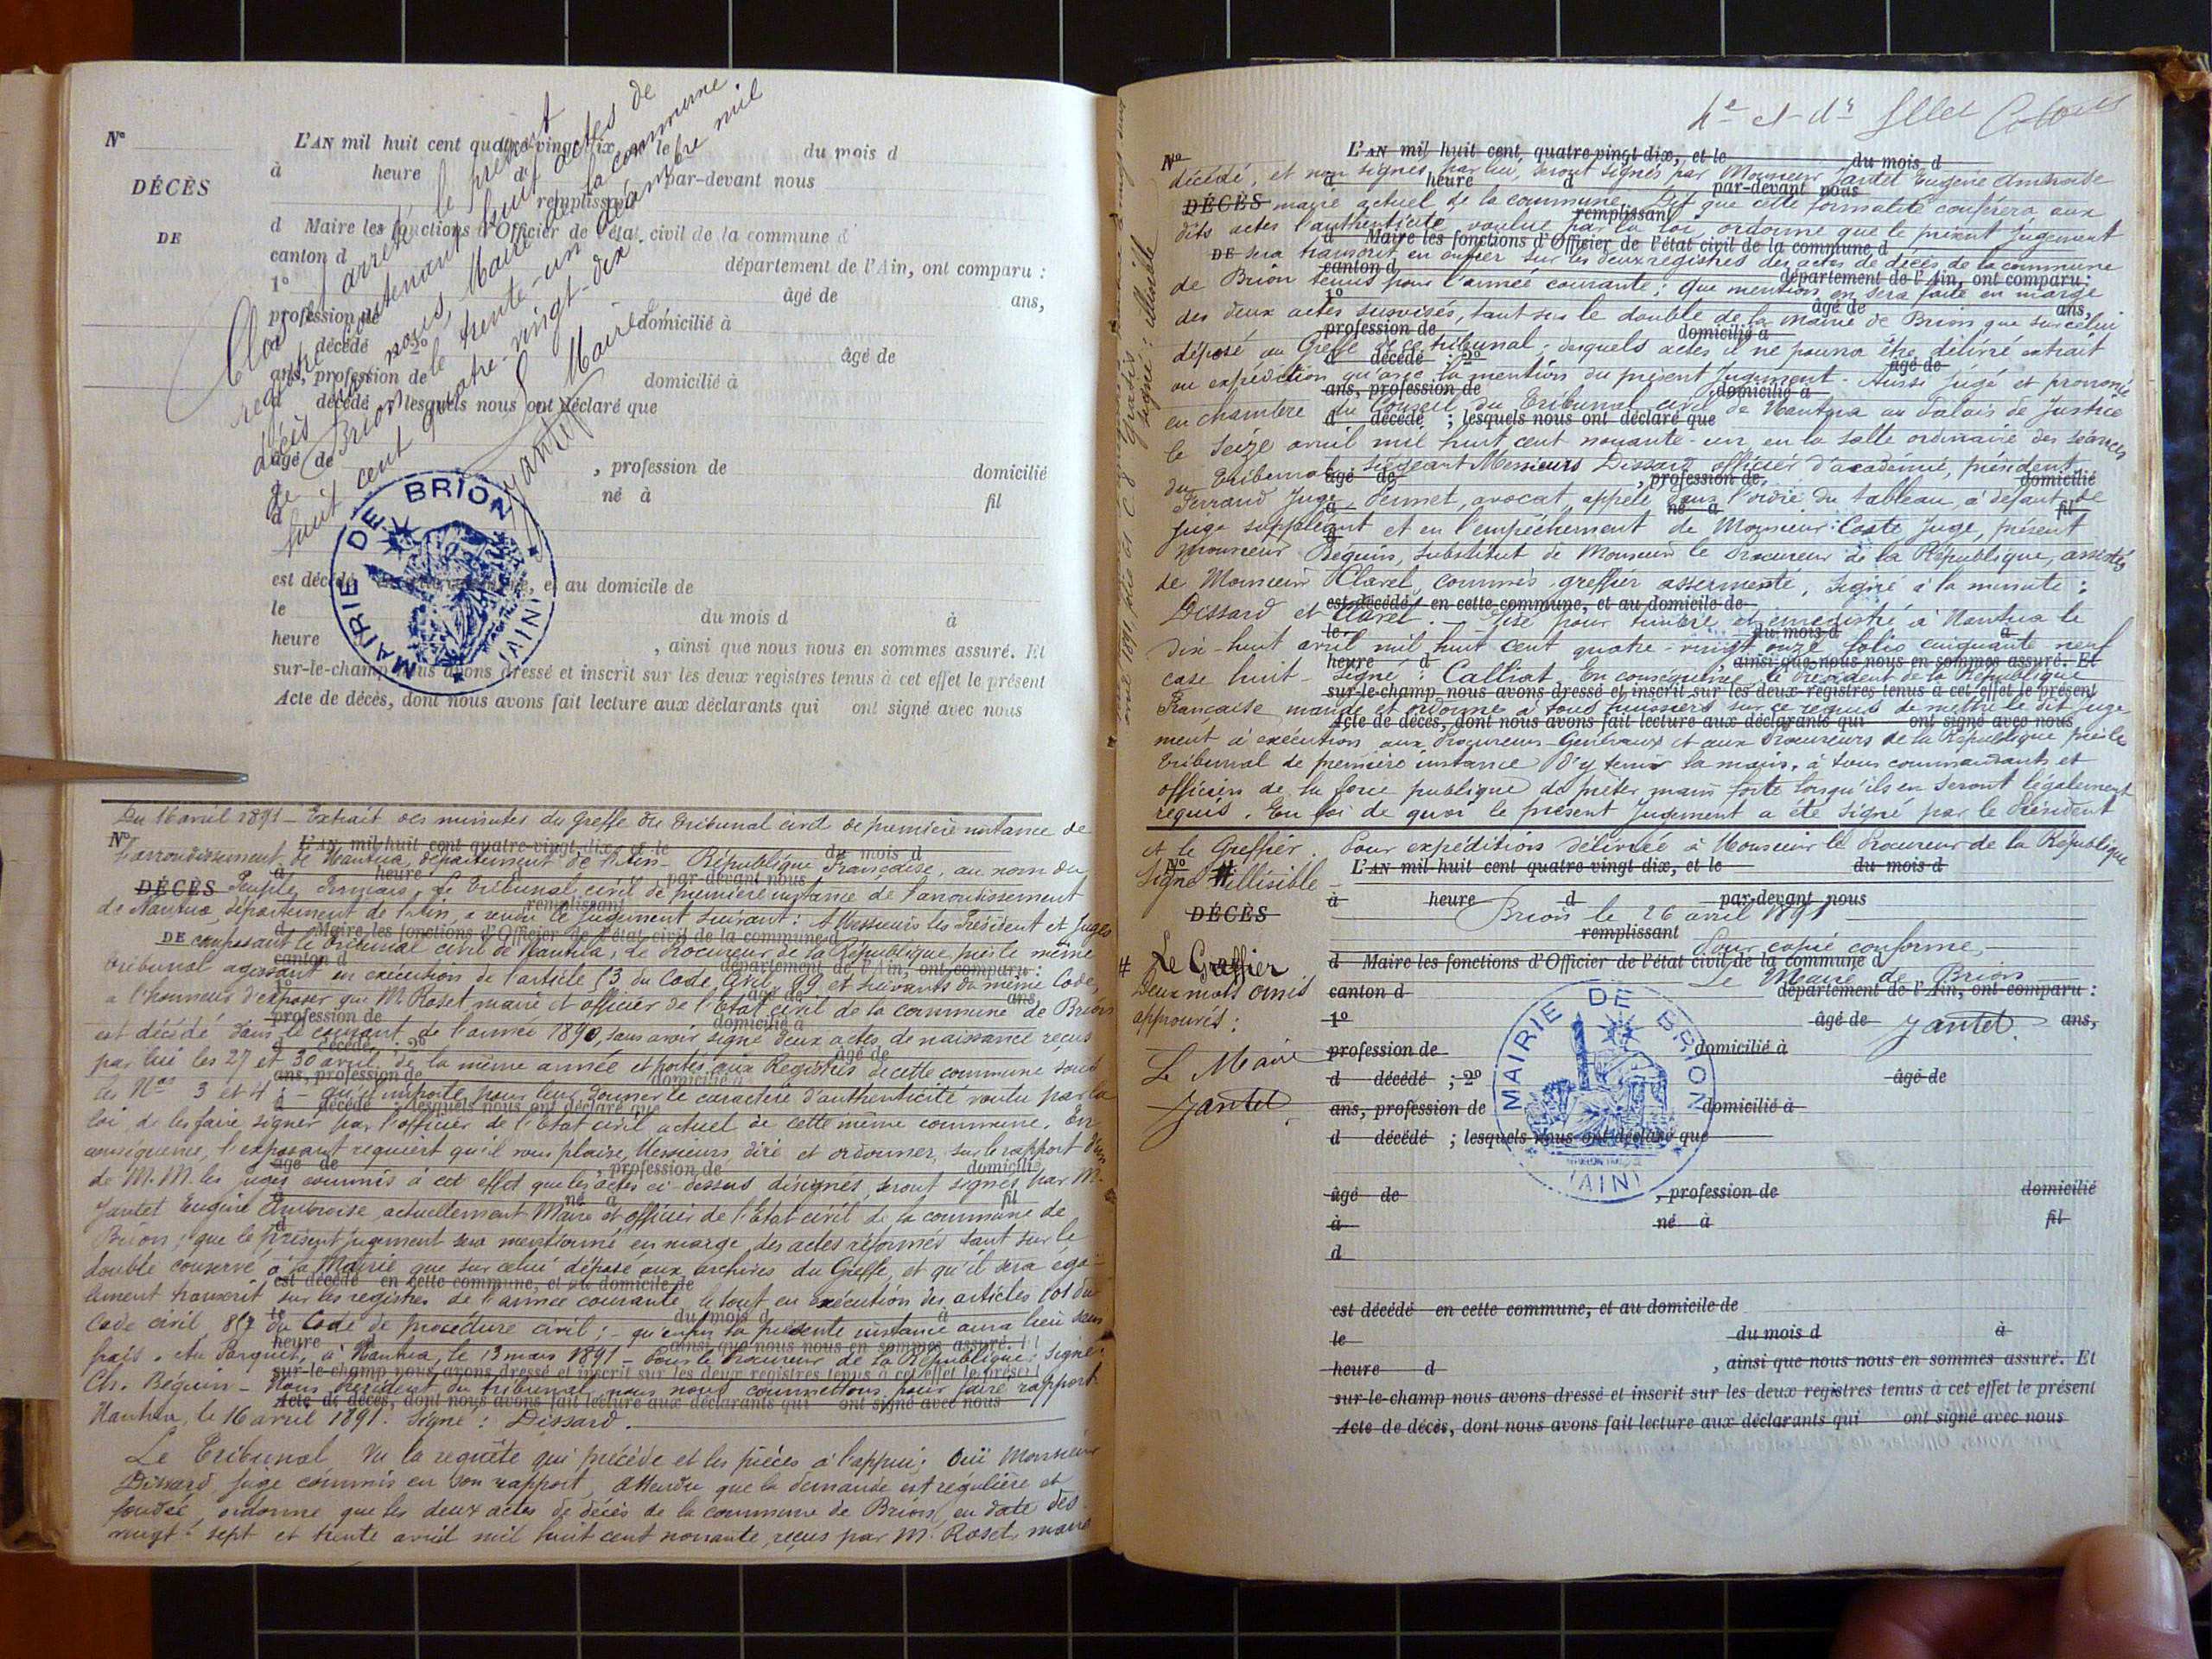 N°
DÉCÈS
DE
L'AN mil huit cent quatre-vingt-dix, le du mois d
à heure d par-devant nous
remplissant
d Maire les fonctions d'Officier de l'état civil de la commune d
canton d département de l'Ain, ont comparu :
1° âgé de ans,
profession de domicilié à
d décédé ; 2° âgé de
ans, profession de domicilié à
d décédé ; lesquels nous ont déclaré que
âgé de , profession de domicilié
à né à fil
d
est décédé en cette commune, et au domicile de
le du mois d à
heure , ainsi que nous nous en sommes assuré. Et
sur-le-champ nous avons dressé et inscrit sur les deux registres tenus à cet effet le présent
Acte de décès, dont nous avons fait lecture aux déclarants qui ont signé avec nous
Clos et arrêté le présent
registre contenant huit actes de
décès par nous, Maire de la commune
de Brion le trente-un décembre mil
huit cent quatre-vingt-dix.
Le Maire
Jantet
MAIRIE DE BRION (AIN)
Du 16 avril 1891 – Extrait des minutes du Greffe du Tribunal civil de première instance de
l'arrondissement de Nantua, département de l'Ain – République Française, au nom du
Peuple Français, le Tribunal civil de première instance de l'arrondissement
de Nantua, département de l'Ain, a rendu le jugement suivant : A Messieurs les Président et Juges
composant le tribunal civil de Nantua, Le Procureur de la République près le même
tribunal agissant en exécution de l'article 53 du Code civil, 99 et suivants du même Code,
a l'honneur d'exposer que M. Roset maire et officier de l'Etat civil de la commune de Brion
est décédé dans le courant de l'année 1890, sans avoir signé deux actes de naissance reçus
par lui les 27 et 30 avril de la même année et portés aux Registres de cette commune sous
les Nos 3 et 4 ; – qu'il importe pour leur donner le caractère d'authenticité voulu par la
loi, de les faire signer par l'officier de l'Etat civil actuel de cette même commune. En
conséquence, l'exposant requiert qu'il vous plaise, Messieurs, dire et ordonner, sur le rapport d'un
de M.M. les Juges commis à cet effet que les actes ci-dessus désignés, seront signés par M.
Jantet Eugène Ambroise, actuellement Maire et officier de l'Etat civil de la commune de
Brion ; que le présent jugement sera mentionné en marge des actes réformés tant sur le
double conservé à la Mairie que sur celui déposé aux archives du Greffe, et qu'il sera éga-
lement transcrit sur les registres de l'année courante, le tout en exécution des articles 101 du
Code civil 857 du Code de procédure civil ; – qu'enfin la présente instance aura lieu sans
frais. Au Parquet, à Nantua, le 13 mars 1891 – Pour le Procureur de la République : Signé :
Ch. Béguin – Nous Président du tribunal, nous nous commettons pour faire rapport.
Nantua, le 16 avril 1891. Signé : Dissard.
Le Tribunal, Vu la requête qui précède et les pièces à l'appui ; Ouï Monsieur
Dissard Juge commis en son rapport, Attendu que la demande est régulière et
fondée, ordonne que les deux actes de décès de la commune de Brion, en date des
vingt-sept et trente avril mil huit cent nonante, reçus par M. Roset, maire
décédé, et non signés par lui, seront signés par Monsieur Jantet Eugène Ambroise
maire actuel de la commune. Dit que cette formalité conférera aux
dits actes l'authenticité voulue par la loi, ordonne que le présent jugement
sera transcrit en entier sur les deux registres des actes de décès de la commune
de Brion tenus pour l'année courante ; Que mention en sera faite en marge
des deux actes susvisés, tant sur le double de la Mairie de Brion que sur celui
déposé au Greffe de ce tribunal ; desquels actes il ne pourra être délivré extrait
ou expédition qu'avec la mention du présent Jugement. Ainsi jugé et prononcé
en chambre du Conseil du Tribunal civil de Nantua au Palais de Justice
le seize avril mil huit cent nonante-un, en la salle ordinaire des séances
du Tribunal, siégeant Messieurs Dissard officier d'académie, président,
Ferrand Juge, Permet, avocat, appelé dans l'ordre du tableau, à défaut de
Juge suppléant et en l'empêchement de Monsieur Coste Juge, présent
Monsieur Béguin, Substitut de Monsieur le Procureur de la République, assistés
de Monsieur Clavel, commis-greffier assermenté, Signé à la minute :
Dissard et Clavel. – Visé pour timbre et enregistré à Nantua le
dix-huit avril mil huit cent quatre-vingt onze folio cinquante neuf
case huit – Signé : Calliat. En conséquence, le Président de la République
Française mande et ordonne à tous huissiers sur ce requis de mettre le dit juge-
ment à exécution, aux Procureurs-Généraux et aux Procureurs de la République près le
tribunal de première instance d'y tenir la main, à tous commandants et
officiers de la force publique de prêter main forte lorsqu'ils en seront légalement
requis. En foi de quoi le présent jugement a été signé par le Président
et le Greffier. Pour expédition délivrée à Monsieur le Procureur de la République
Signé # illisible –
Brion le 26 avril 1891
Pour copie conforme,
Le Maire de Brion
Jantet
# Le Greffier
Deux mots omis
approuvés :
Le Maire
Jantet
MAIRIE DE BRION (AIN)
N°
DÉCÈS
L'AN mil huit cent quatre-vingt-dix, et le du mois d
à heure d par-devant nous
remplissant
d Maire les fonctions d'Officier de l'état civil de la commune d
canton d département de l'Ain, ont comparu :
1° âgé de ans,
profession de domicilié à
d décédé ; 2° âgé de
ans, profession de domicilié à
d décédé ; lesquels nous ont déclaré que
âgé de , profession de domicilié
à né à fil
d
est décédé en cette commune, et au domicile de
le du mois d à
heure d , ainsi que nous nous en sommes assuré. Et
sur-le-champ nous avons dressé et inscrit sur les deux registres tenus à cet effet le présent
Acte de décès, dont nous avons fait lecture aux déclarants qui ont signé avec nous